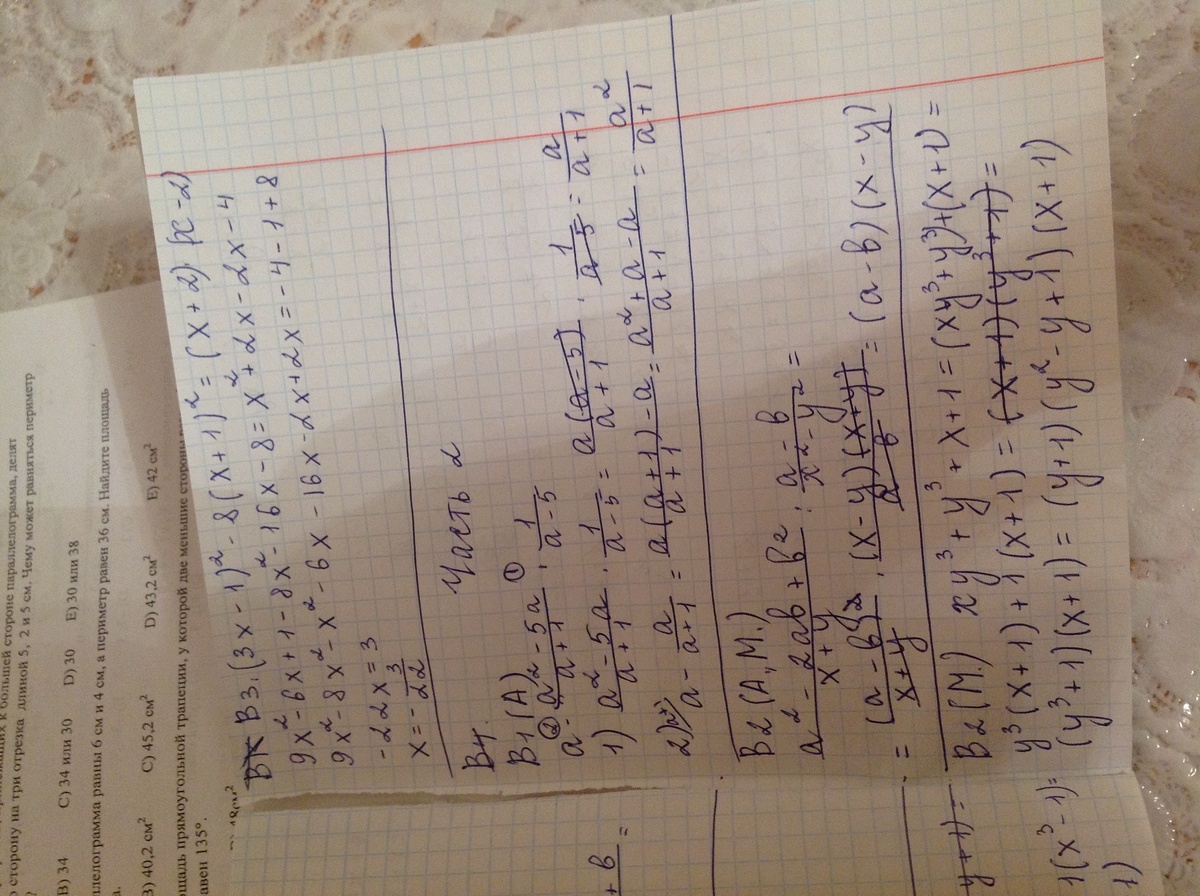 сторону на три отрезка длиной 5, 2 и 5 см. Чему может равняться периметр
B) 34 C) 34 или 30 D) 30 E) 30 или 38
ллелограмма равны 6 см и 4 см, а периметр равен 36 см. Найдите площадь
а.
B) 40,2 см² C) 45,2 см² D) 43,2 см² E) 42 см²
щадь прямоугольной трапеции, у которой две меньшие стороны
авен 135°.
В3. (3x-1)²-8(x+1)²=(x+2)·(x-2)
9x²-6x+1-8x²-16x-8=x²+2x-2x-4
9x²-8x²-x²-6x-16x-2x+2x=-4-1+8
-22x=3
x=-3/22
Часть 2
В4.
В1(А)
a - ② (a²-5a)/(a+1) · ① 1/(a-5)
1) (a²-5a)/(a+1) · 1/(a-5) = a(a-5)/(a+1) · 1/(a-5) = a/(a+1)
2) a - a/(a+1) = (a(a+1)-a)/(a+1) = (a²+a-a)/(a+1) = a²/(a+1)
В2(А,М.)
(a²-2ab+b²)/(x+y) : (a-b)/(x²-y²) =
= (a-b)²/(x+y) · (x-y)(x+y)/(a-b) = (a-b)(x-y)
В2(М.) xy³+y³+x+1=(xy³+y³)+(x+1)=
y³(x+1)+1(x+1)=(x+1)(y³+1)=
(y³+1)(x+1)=(y+1)(y²-y+1)(x+1)
+b =
y+1)=
1(x³-1)=
1)